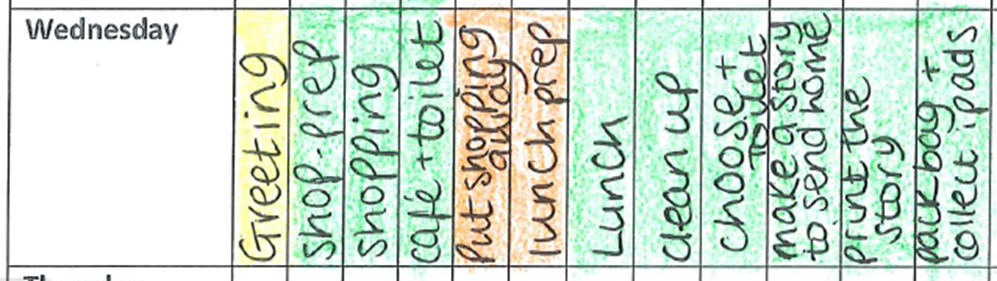 Wednesday
Greeting
shop-prep
shopping
café + toilet
Put shopping
away
lunch prep
Lunch
clean up
choose +
toilet
make a story
to send home
print the
story
pack bag +
collect ipads